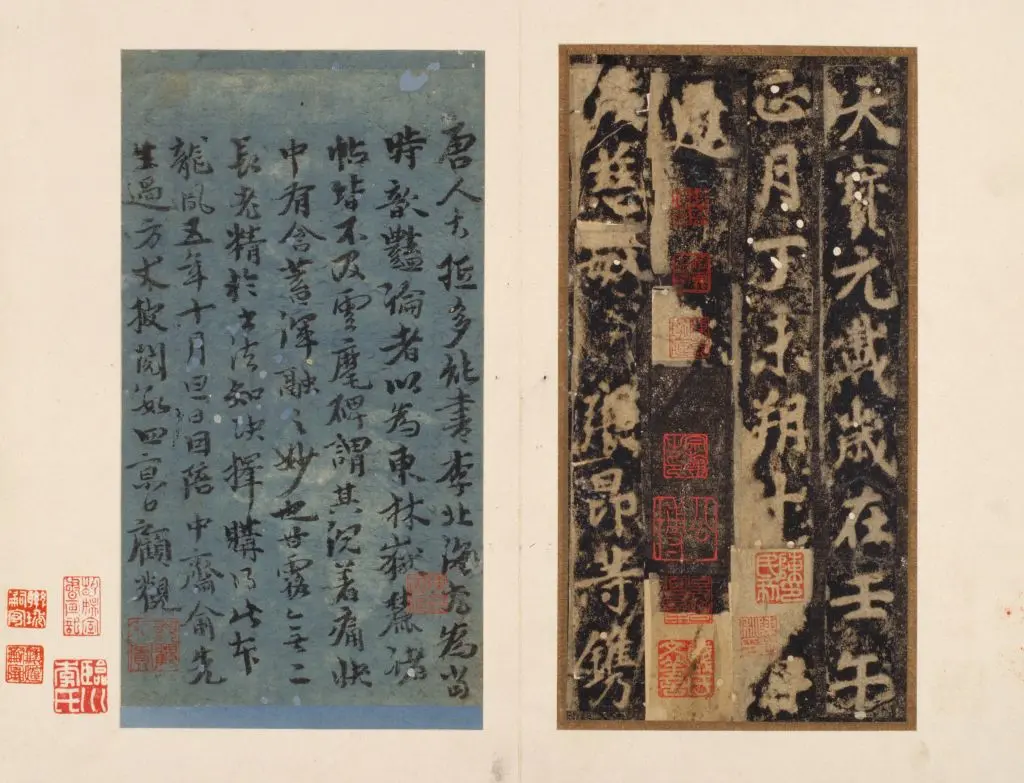 天寶元載歲在壬午
正月丁未朔十
逸
慈敏張昂等鐫
唐人大抵多能書李北海尤為當
時歆豔論者以為東林嶽麓諸
帖皆不及雲麾碑謂其沉着痛快
中有含蓄渾融之妙也甘露無二
長老精於書法知決擇購得此本
龍鳳五年十月旦日因陪中齋俞先
生過方丈披閱數四京口顧觀
臨川李氏